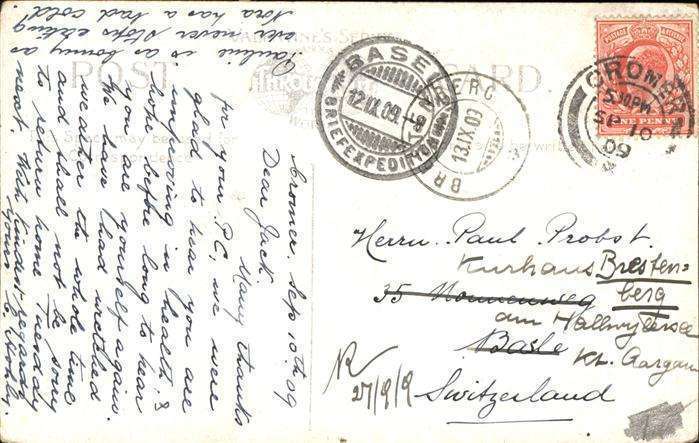 Pauline is as bonny as
ever never stops eating
Nora has a bad cold.
POST CARD.
Cromer. Sep 10th 09
Dear Jack.
Many thanks
for your P.C, we were
glad to hear you are
improving in health &
hope before long to hear
you are yourself again.
We have had wretched
weather the whole time
and shall not be sorry
to return home Tuesday
next. With kindest regards
Yours
BASEL
12.IX.09.
BRIEFEXPEDITION
BR
ENBERG
13.IX.09
CROMER
5.30PM
SP 10
09
POSTAGE REVENUE
ONE PENNY
Herrn Paul Probst.
Kurhaus Bresten-
berg
35 Nonnenweg
am Hallwylersee
Basle
Kt. Aargau
Switzerland
27/9/9